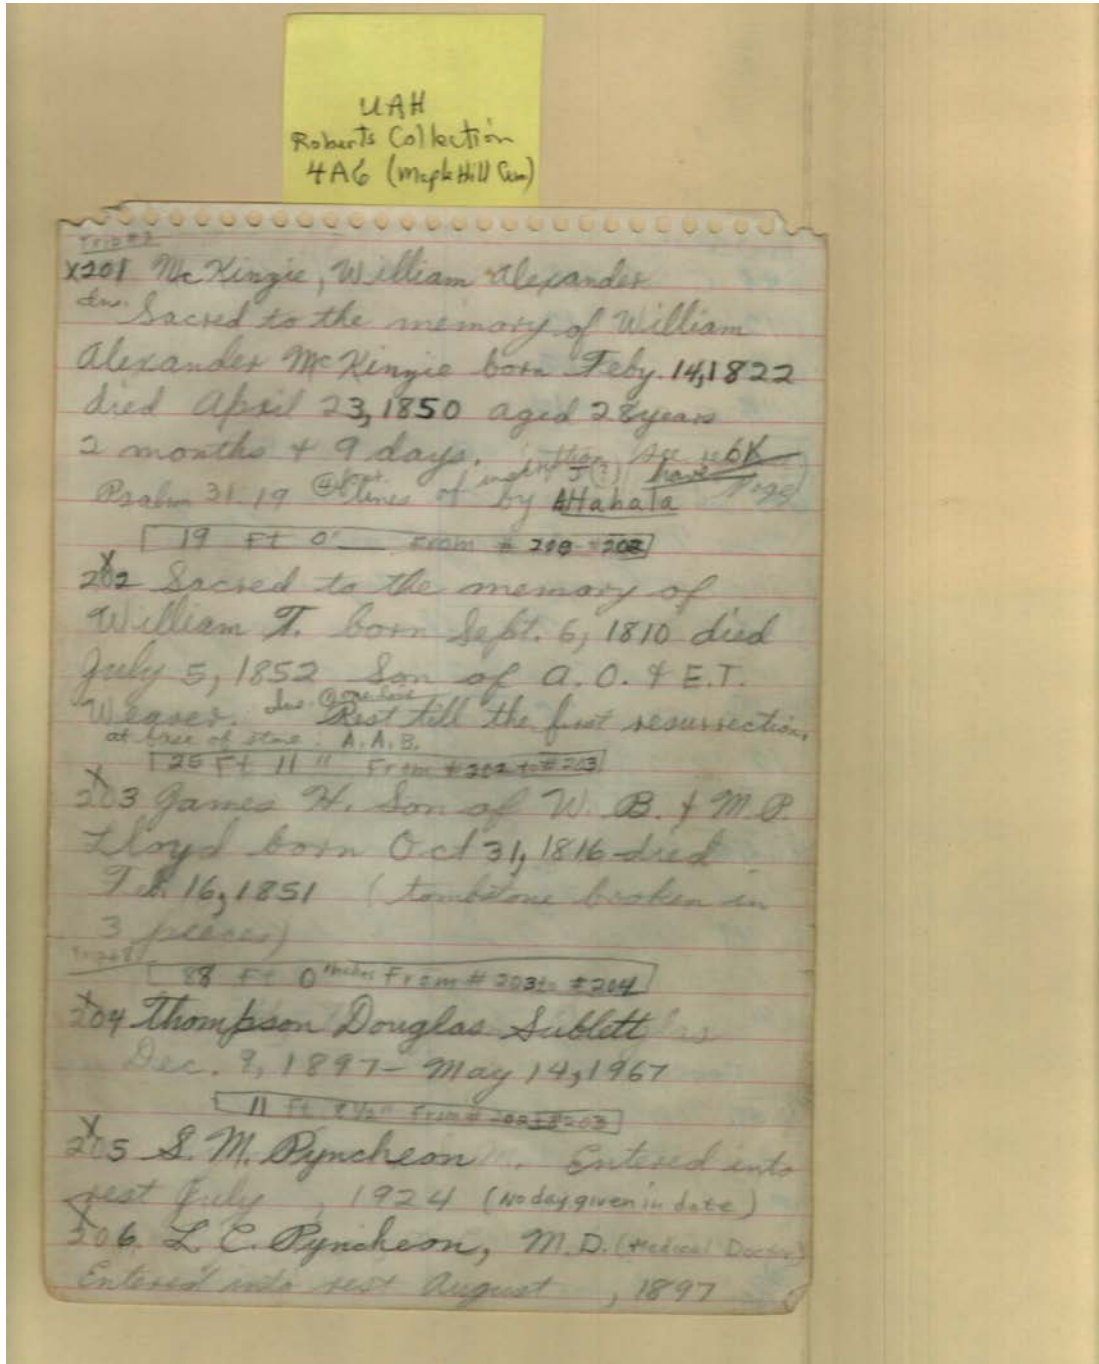 UAH
Roberts Collection
4A6 (Maple Hill Cem)
X201 McKinzie, William Alexander
Sacred to the memory of William
Alexander McKinzie born Feby. 14, 1822
died April 23, 1850 aged 28 years
2 months + 9 days.
Psalm 31.19 lines of by
19 Ft 0" From # 200
202 Sacred to the memory of
William T. born Sept. 6, 1810 died
July 5, 1852 Son of A. O. & E.T.
Weaver. Rest till the first resurrection.
at base of stone: A.A.B.
25 Ft 11" From #202 to #203
X
203 James H. Son of W. B. & M.P.
Lloyd born Oct 31, 1816 died
Feb. 16, 1851 (tombstone broken in
3 pieces)
88 Ft 0 inches From # 203 to #204
X
204 Thompson Douglas Sublett
Dec. 9, 1897 - May 14, 1967
11 Ft 8 1/2" From # 202 to #203
X
205 S. M. Pyncheon. Entered into
rest July , 1924 (No day given in date)
X
206. L. C. Pyncheon, M.D. (Medical Doctor)
Entered into rest August , 1897